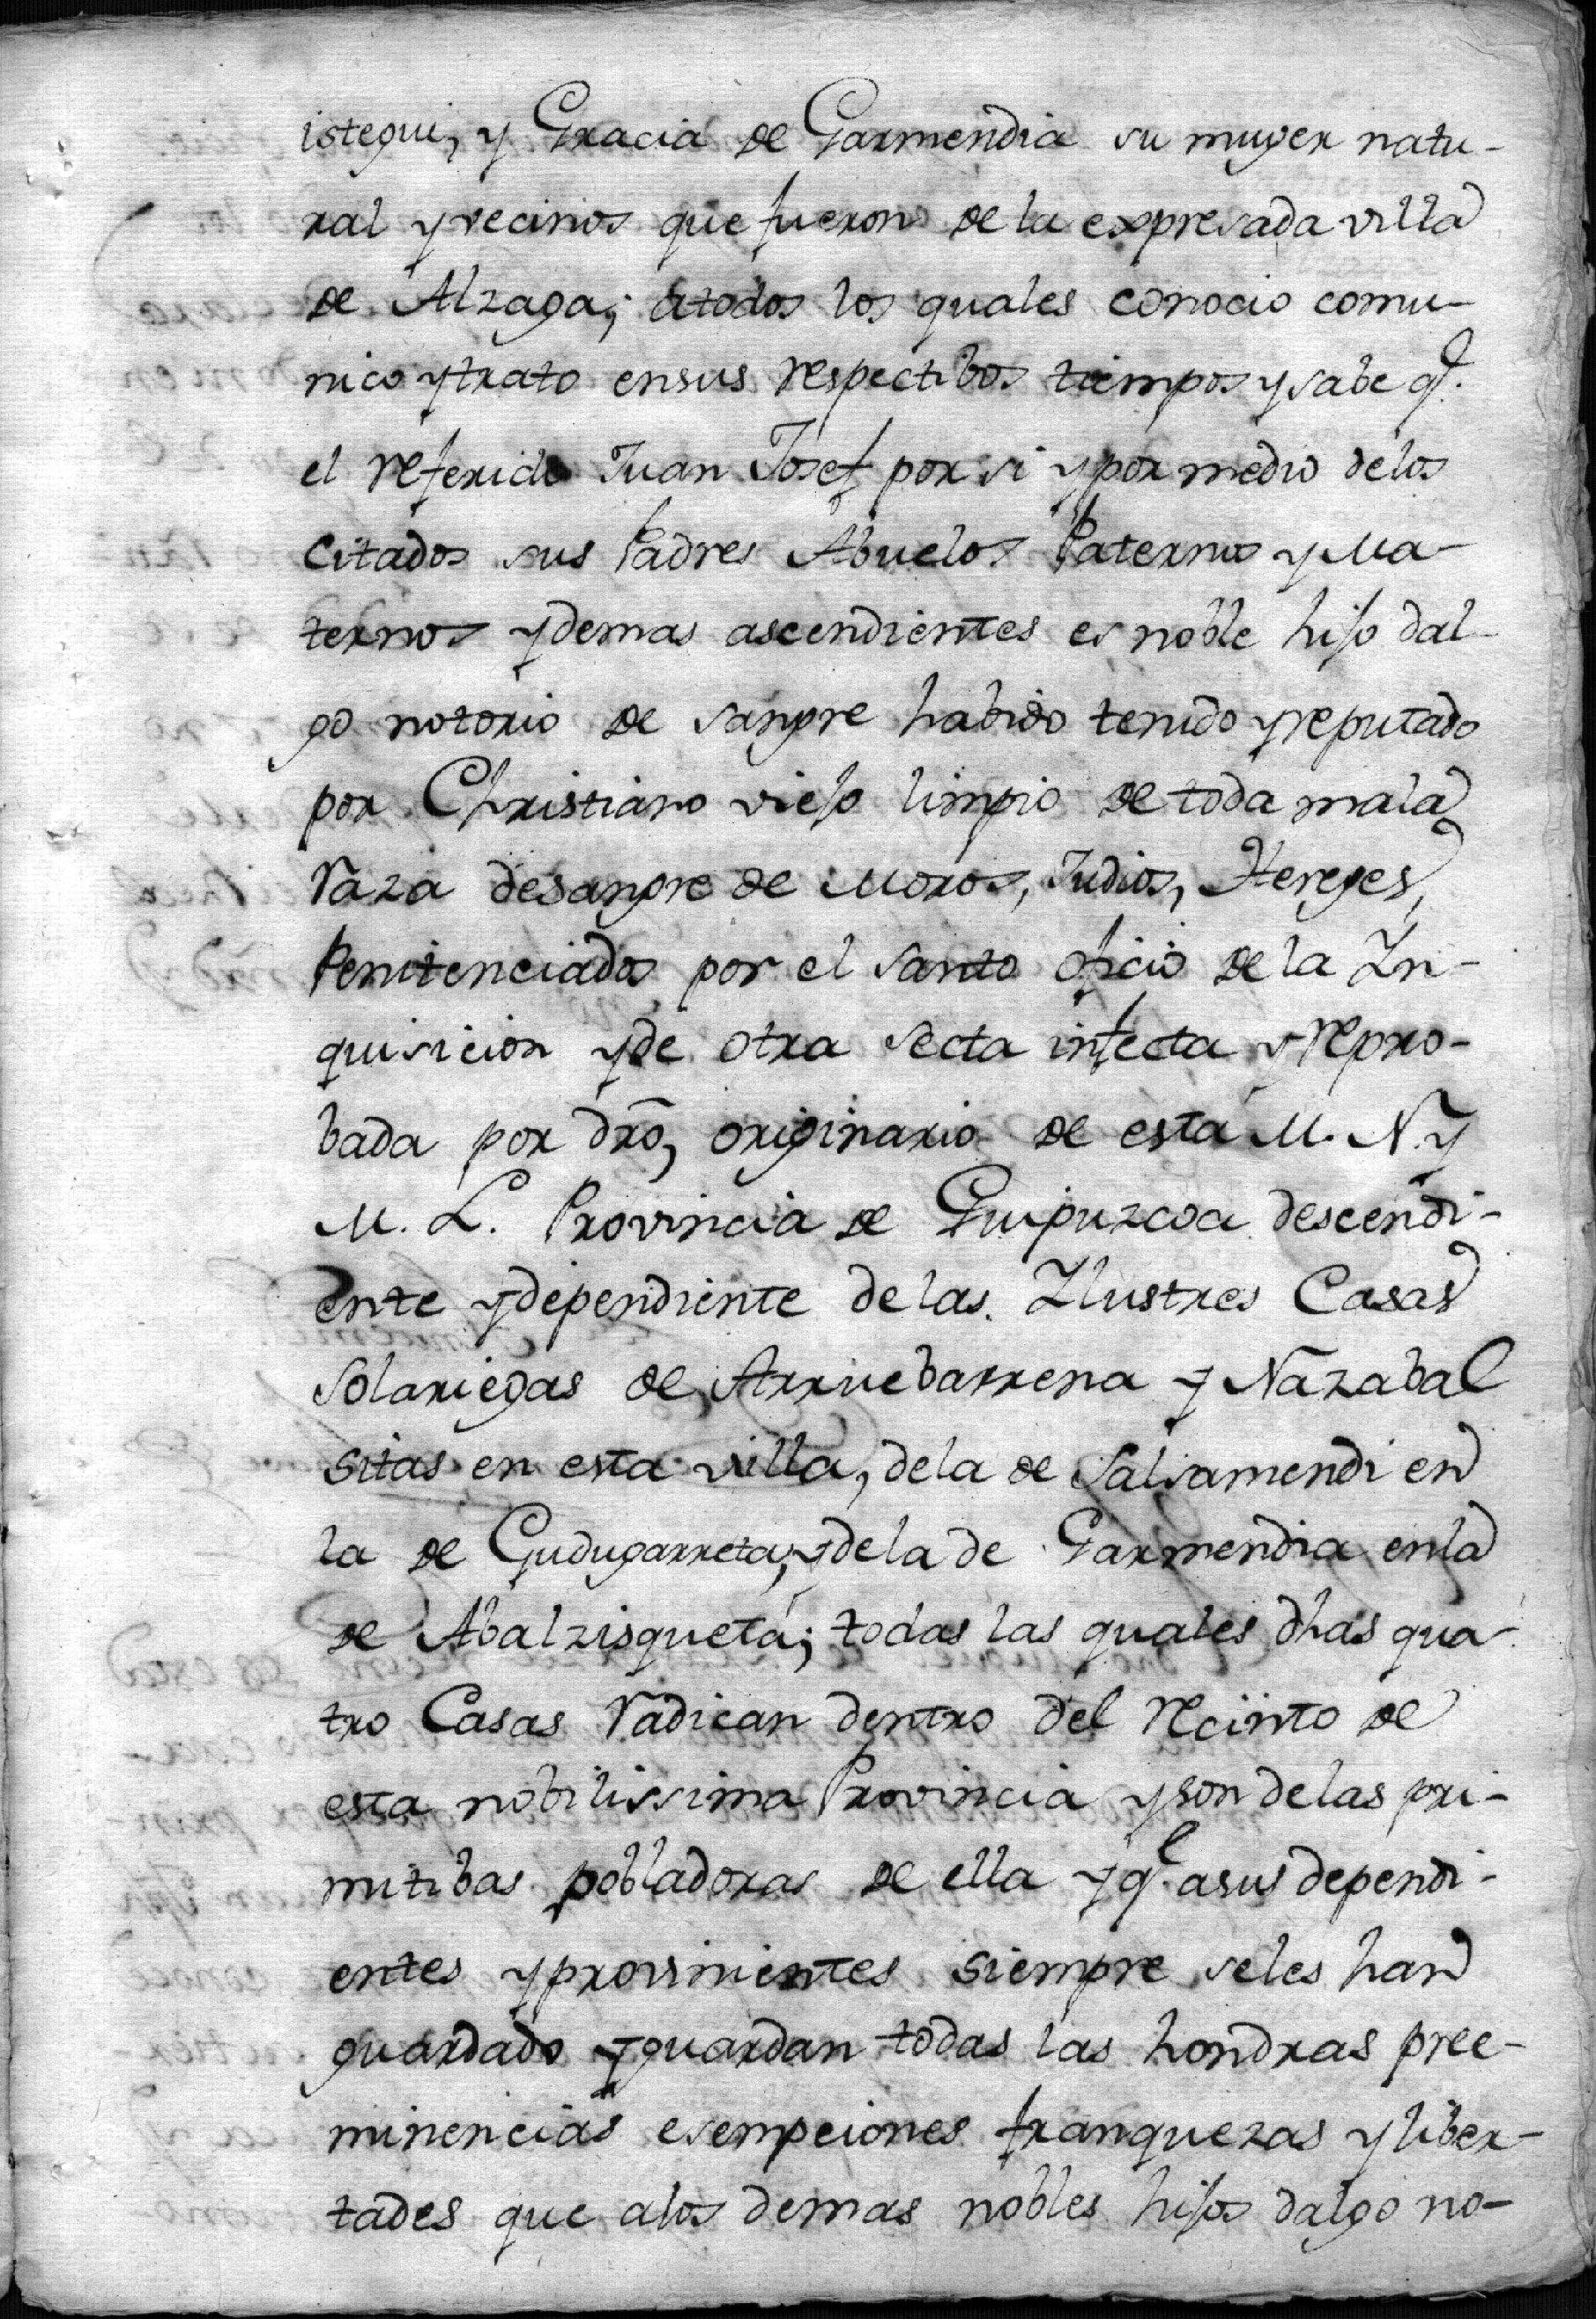 istegui, y Gracia de Garmendia su muger natu-
ral y vecinos que fueron de la expresada villa
de Alzaga; atodos los quales conocio comu-
nico ytrato ensus respectibos tiempos ysabe q.e
el referido Juan Josef por si ypor medio delos
citados sus Padres Abuelos Paternos y Ma-
ternos ydemas ascendientes es noble hijo dal-
go notorio de sangre habido tenido yreputado
por Christiano viejo limpio de toda mala
raza desangre de Moros, Judios, Hereges,
Penitenciados por el santo oficio de la In-
quisicion yde otra secta infecta yrepro-
bada por dro, originario de esta M. N. y
M. L. Provincia de Guipuzcoa descendi-
ente ydependiente de las Ilustres Casas
Solariegas de Arruebarrena y Nazabal
sitas en esta villa, dela de Salsamendi en
la de Gudugarreta, ydela de Garmendia enla
de Abalzisqueta; todas las quales dhas qua-
tro Casas radican dentro del recinto de
esta nobilissima Provincia yson delas pri-
mitibas pobladoras de ella yq.e asus dependi-
entes yprovinientes siempre seles han
guardado yguardan todas las hondras pree-
minencias esempciones franquezas yliber-
tades que alos demas nobles hijos dalgo no-